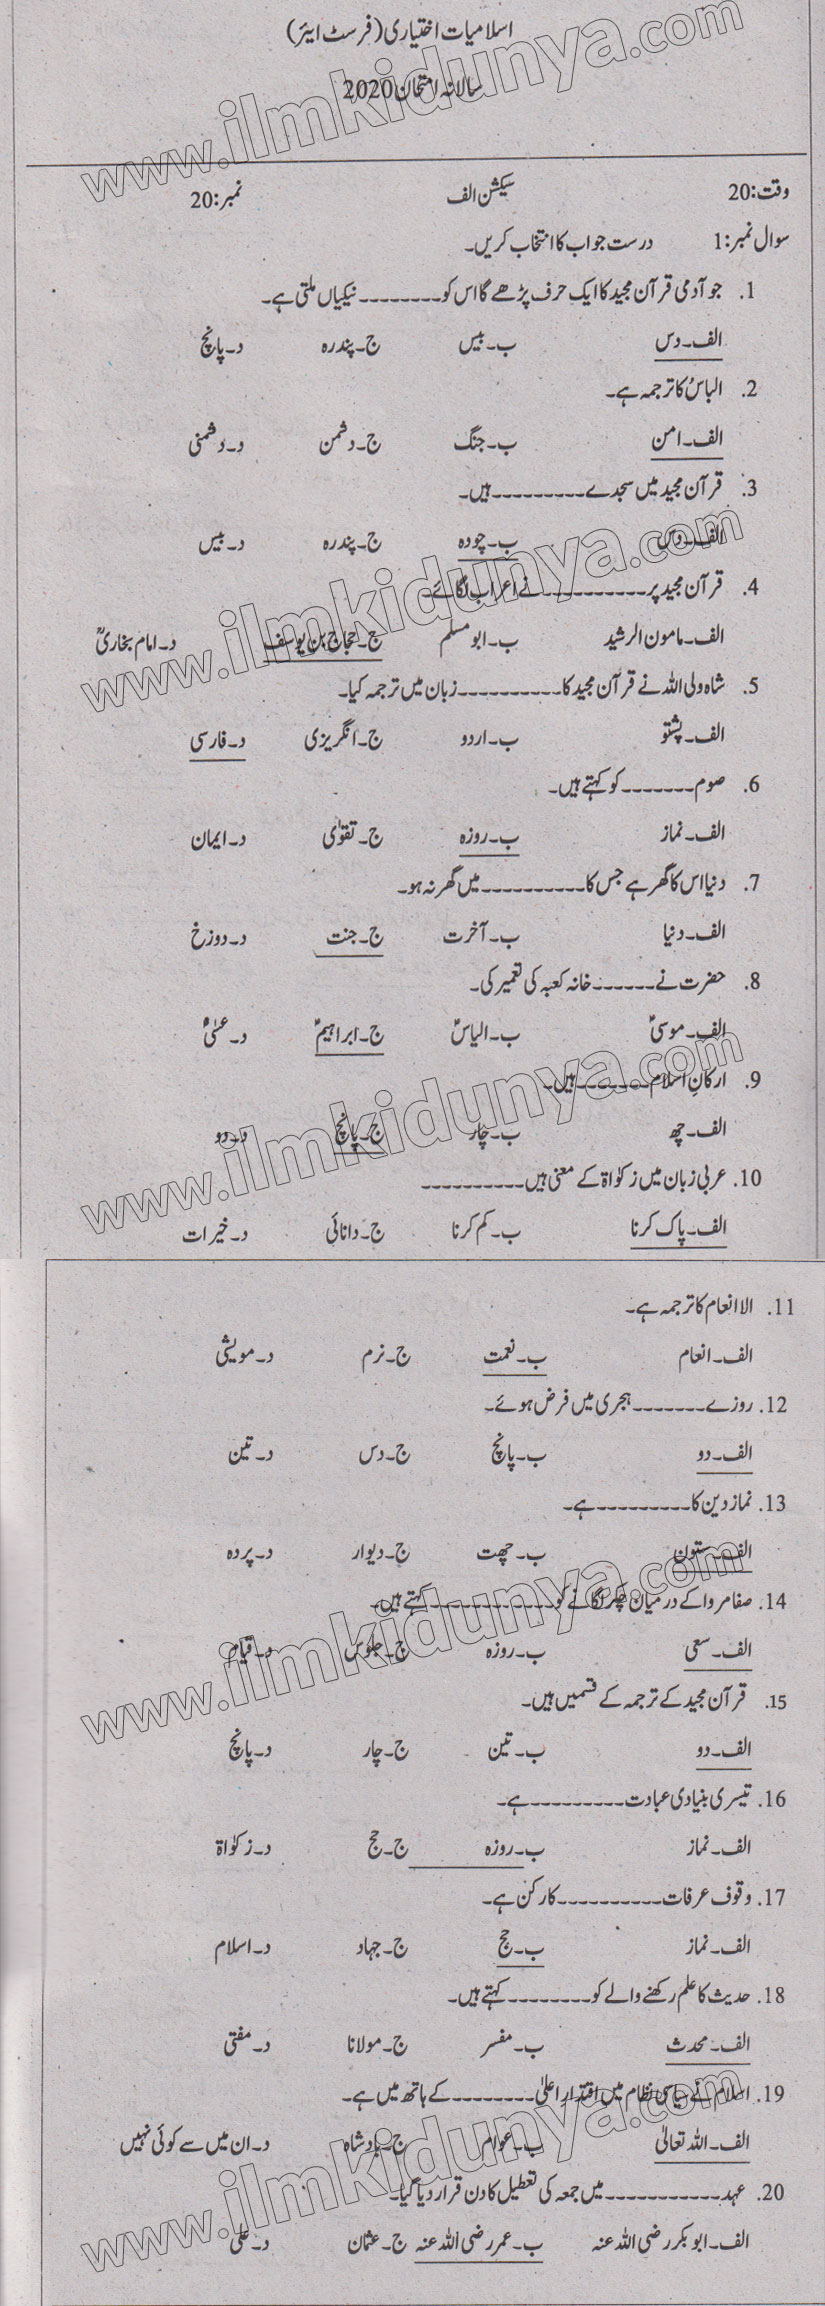 اسلامیات اختیاری (فرسٹ ایئر)
سالانہ امتحان 2020
www.ilmkidunya.com
وقت: 20 سیکشن الف نمبر: 20
سوال نمبر: 1 درست جواب کا انتخاب کریں۔
1. جو آدمی قرآن مجید کا ایک حرف پڑھے گا اس کو ۔۔۔۔۔۔۔۔ نیکیاں ملتی ہے۔
الف۔ دس ب۔ بیس ج۔ پندرہ د۔ پانچ
2. الباسُ کا ترجمہ ہے۔
الف۔ امن ب۔ جنگ ج۔ دشمن د۔ دشمنی
3. قرآن مجید میں سجدے ۔۔۔۔۔۔۔۔۔ ہیں۔
الف۔ دس ب۔ چودہ ج۔ پندرہ د۔ بیس
www.ilmkidunya.com
4. قرآن مجید پر ۔۔۔۔۔۔۔۔۔۔۔ نے اعراب لگائے۔
الف۔ مامون الرشید ب۔ ابو مسلم ج۔ حجاج بن یوسف د۔ امام بخاریؒ
5. شاہ ولی اللہ نے قرآن مجید کا ۔۔۔۔۔۔۔۔۔۔ زبان میں ترجمہ کیا۔
الف۔ پشتو ب۔ اردو ج۔ انگریزی د۔ فارسی
6. صوم ۔۔۔۔۔۔۔ کو کہتے ہیں۔
الف۔ نماز ب۔ روزہ ج۔ تقوٰی د۔ ایمان
7. دنیا اس کا گھر ہے جس کا ۔۔۔۔۔۔۔۔۔۔ میں گھر نہ ہو۔
الف۔ دنیا ب۔ آخرت ج۔ جنت د۔ دوزخ
8. حضرت نے ۔۔۔۔۔۔ خانہ کعبہ کی تعمیر کی۔
الف۔ موسیٰؑ ب۔ الیاسؑ ج۔ ابراہیمؑ د۔ عیسیٰؑ
www.ilmkidunya.com
9. ارکانِ اسلام ۔۔۔۔۔۔۔ ہیں۔
الف۔ چھ ب۔ چار ج۔ پانچ د۔ دو
10. عربی زبان میں زکوٰاۃ کے معنی ہیں ۔۔۔۔۔۔۔۔۔۔
الف۔ پاک کرنا ب۔ کم کرنا ج۔ دانائی د۔ خیرات
11. الا انعام کا ترجمہ ہے۔
الف۔ انعام ب۔ نعمت ج۔ نرم د۔ مویشی
12. روزے ۔۔۔۔۔۔۔ ہجری میں فرض ہوئے۔
الف۔ دو ب۔ پانچ ج۔ دس د۔ تین
13. نماز دین کا ۔۔۔۔۔۔۔۔۔ ہے۔
الف۔ ستون ب۔ چھت ج۔ دیوار د۔ پردہ
www.ilmkidunya.com
14. صفا مروا کے درمیان چکر لگانے کو ۔۔۔۔۔۔۔۔۔۔۔۔ کہتے ہیں۔
الف۔ سعی ب۔ روزہ ج۔ جلوس د۔ قیام
15. قرآن مجید کے ترجمہ کے قسمیں ہیں۔
الف۔ دو ب۔ تین ج۔ چار د۔ پانچ
16. تیسری بنیادی عبادت ۔۔۔۔۔۔۔۔۔ ہے۔
الف۔ نماز ب۔ روزہ ج۔ حج د۔ زکوٰاۃ
17. وقوف عرفات ۔۔۔۔۔۔۔۔۔۔ کا رکن ہے۔
الف۔ نماز ب۔ حج ج۔ جہاد د۔ اسلام
18. حدیث کا علم رکھنے والے کو ۔۔۔۔۔۔۔۔ کہتے ہیں۔
الف۔ محدث ب۔ مفسر ج۔ مولانا د۔ مفتی
19. اسلام نے سیاسی نظام میں اقتدارِ اعلیٰ ۔۔۔۔۔۔۔۔ کے ہاتھ میں ہے۔
الف۔ اللہ تعالیٰ ب۔ عوام ج۔ بادشاہ د۔ ان میں سے کوئی نہیں
www.ilmkidunya.com
20. عہد ۔۔۔۔۔۔۔۔۔۔۔ میں جمعہ کی تعطیل کا دن قرار دیا گیا۔
الف۔ ابوبکر رضی اللہ عنہ ب۔ عمر رضی اللہ عنہ ج۔ عثمان د۔ علی